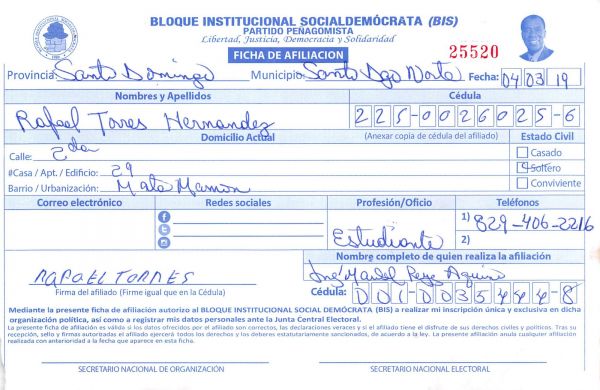 BLOQUE INSTITUCIONAL SOCIALDEMÓCRATA (BIS)
PARTIDO PEÑAGOMISTA
Libertad, Justicia, Democracia y Solidaridad
FICHA DE AFILIACION
25520
Provincia: Santo Domingo Municipio: Santo Dgo Norte Fecha: 04 03 19
Nombres y Apellidos Cédula
Rafael Torres Hernandez 225-0026025-6
Domicilio Actual (Anexar copia de cédula del afiliado) Estado Civil
Calle: 2da
Casado
#Casa / Apt. / Edificio: 29
Soltero
Barrio / Urbanización: Mata Mamon
Conviviente
Correo electrónico Redes sociales Profesión/Oficio Teléfonos
1) 829-406-2216
Estudiante 2)
Nombre completo de quien realiza la afiliación
RAFAEL TORRES
Firma del afiliado (Firme igual que en la Cédula)
Cédula: 001-0035444-8
Mediante la presente ficha de afiliación autorizo al BLOQUE INSTITUCIONAL SOCIAL DEMÓCRATA (BIS) a realizar mi inscripción única y exclusiva en dicha
organización política, así como a registrar mis datos personales ante la Junta Central Electoral.
La presente ficha de afiliación es válida si los datos ofrecidos por el afiliado son correctos, las declaraciones veraces y si el afiliado tiene el disfrute de sus derechos civiles y políticos. Tras su
recepción, sello y firmas autorizadas el afiliado ejercerá todos los derechos y los deberes estatutariamente sancionados, de acuerdo a la ley. La presente afiliación anula cualquier afiliación
realizada con anterioridad a la fecha que aparece en esta ficha.
SECRETARIO NACIONAL DE ORGANIZACIÓN SECRETARIO NACIONAL ELECTORAL